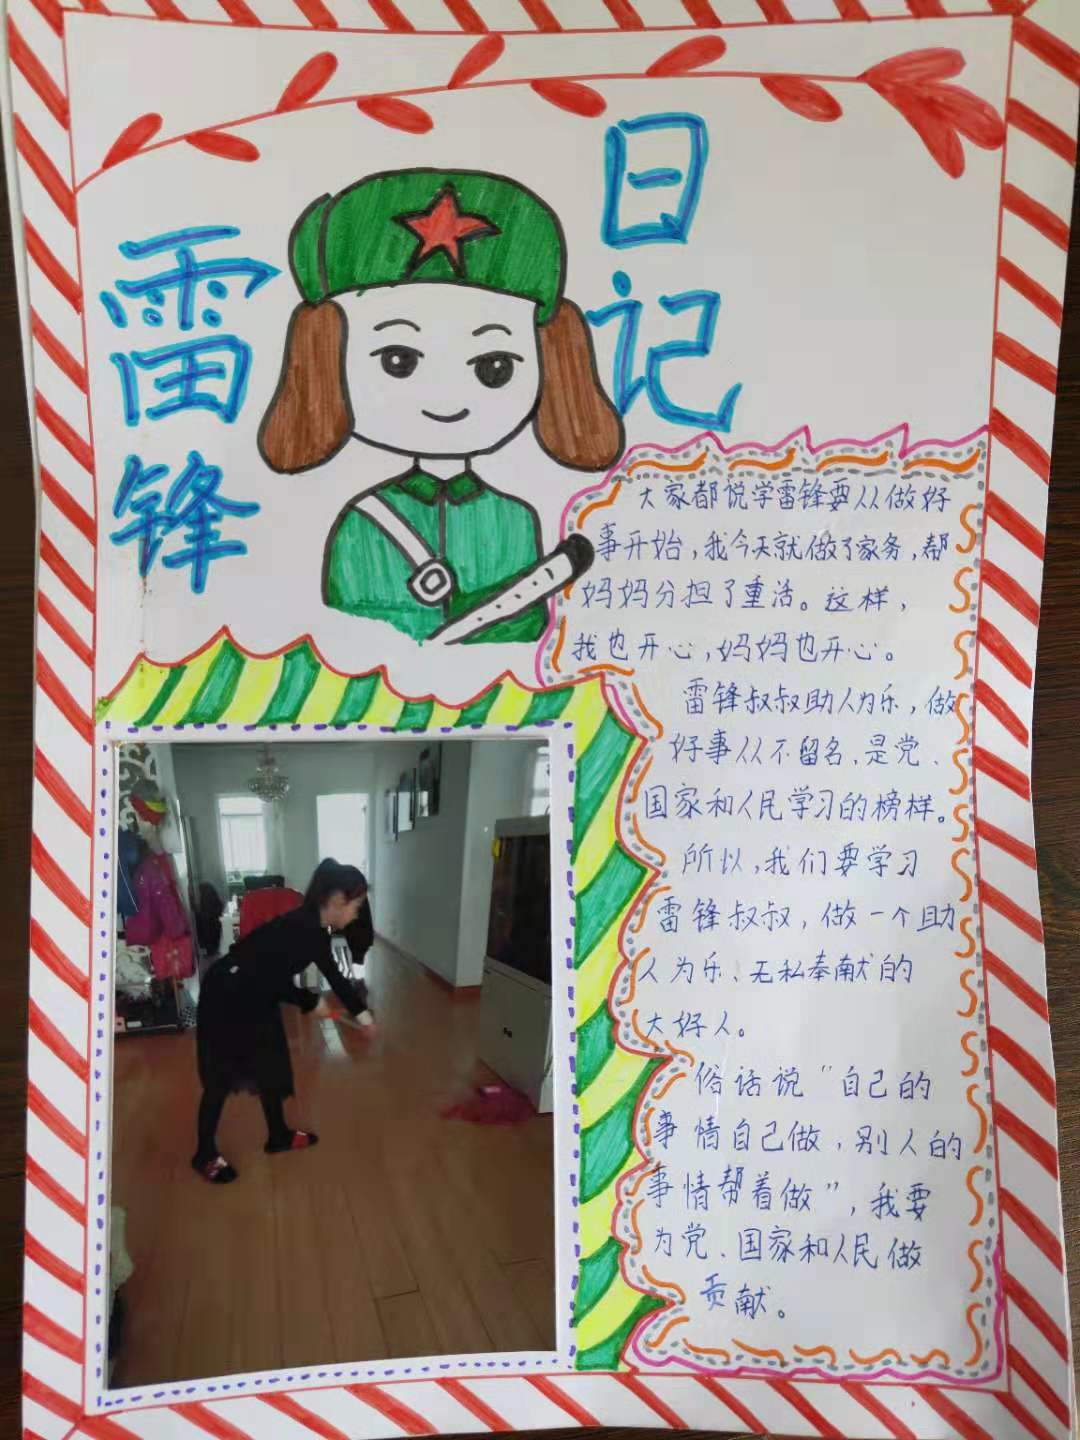 雷锋
日记
大家都说学雷锋要从做好
事开始，我今天就做了家务，帮
妈妈分担了重活。这样，
我也开心，妈妈也开心。
雷锋叔叔助人为乐，做
好事从不留名，是党、
国家和人民学习的榜样。
所以，我们要学习
雷锋叔叔，做一个助
人为乐、无私奉献的
大好人。
俗话说“自己的
事情自己做，别人的
事情帮着做”，我要
为党、国家和人民做
贡献。